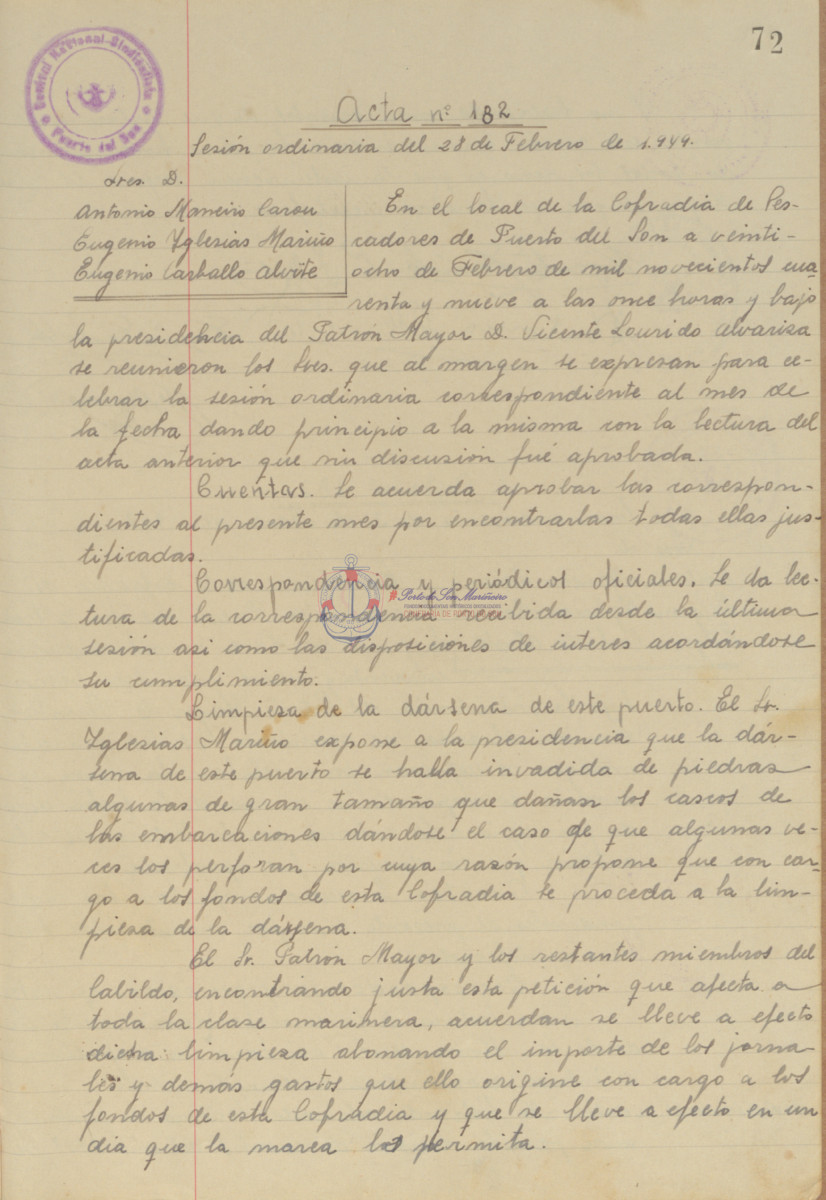 72
Central Nacional Sindicalista
Puerto del Son
Acta nº 182
Sesión ordinaria del 28 de Febrero de 1.949.
Sres. D.
Antonio Maneiro Carou
Eugenio Yglesias Mariño
Eugenio Carballo Alvite
En el local de la Cofradia de Pes-
cadores de Puerto del Son a veinti-
ocho de Febrero de mil novecientos cua-
renta y nueve a las once horas y bajo
la presidencia del Patrón Mayor D. Vicente Lourido Alvariza
se reunieron los Sres. que al margen se expresan para ce-
lebrar la sesión ordinaria correspondiente al mes de
la fecha dando principio a la misma con la lectura del
acta anterior que sin discusión fué aprobada.
Cuentas. Se acuerda aprobar las correspon-
dientes al presente mes por encontrarlas todas ellas jus-
tificadas.
Correspondencia y periódicos oficiales. Se da lec-
Porto do Son Mariñeiro
tura de la correspondencia recibida desde la última
sesión asi como las disposiciones de interes acordándose
su cumplimiento.
Limpieza de la dársena de este puerto. El Sr.
Yglesias Mariño expone a la presidencia que la dár-
sena de este puerto se halla invadida de piedras
algunas de gran tamaño que dañan los cascos de
las embarcaciones dándose el caso de que algunas ve-
ces los perforan por cuya razón propone que con car-
go a los fondos de esta Cofradia se proceda a la lim-
pieza de la dársena.
El Sr. Patrón Mayor y los restantes miembros del
Cabildo, encontrando justa esta petición que afecta a
toda la clase marinera, acuerdan se lleve a efecto
dicha limpieza abonando el importe de los jorna-
les y demas gastos que ello origine con cargo a los
fondos de esta Cofradia y que se lleve a efecto en un
dia que la marea lo permita.